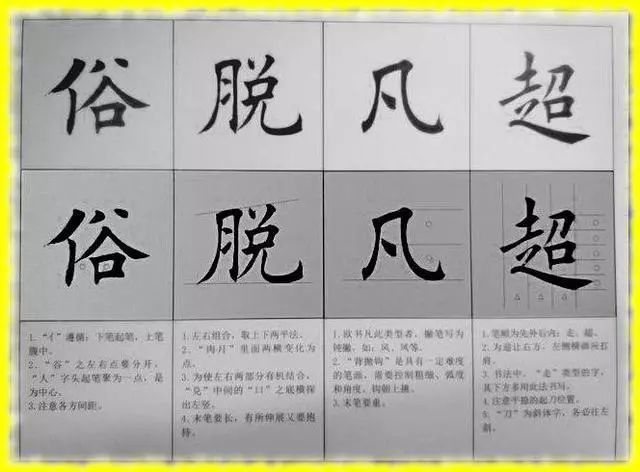 俗 脱 凡 超
俗 脱 凡 超
1.“亻”遵循：下笔起笔，上笔
腹中。
2.“谷”之左右点要分开，
“人”字头起笔聚为一点，是
为中心。
3.注意各方间距。
1.左右组合，取上下两平法。
2.“肉月”里面两横变化为
点。
3.为使左右两部分有机结合，
“兑”中间的“口”之底横探
出左竖。
4.末笔要长，有所伸展又要抱
持。
1.欧书凡此类型者，撇笔写为
钝撇，如：风、凤等。
2.“背抛钩”是具有一定难度
的笔画，需要控制粗细、弧度
和角度，钩朝上挑。
3.末笔要重。
1.笔顺为先外后内：走、超。
2.为避让右方，左侧横画
肩。
3.书法中，“走”类型的字，
其下方多用此法书写。
4.注意平捺的起刀位置。
5.“刀”为斜体字，务必往左
斜。